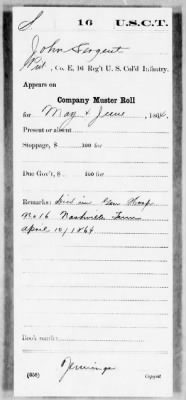 S 16 U.S.C.T.
John Sergent
Pvt, Co. E, 16 Reg't U. S. Col'd Infantry.
Appears on
Company Muster Roll
for May & June, 1864.
Present or absent
Stoppage, $ 100 for
Due Gov't, $ 100 for
Remarks: Died in Gen Hosp
No 16 Nashville Tenn
April 10/1864
Book mark:
Jennings
(358) Copyist.